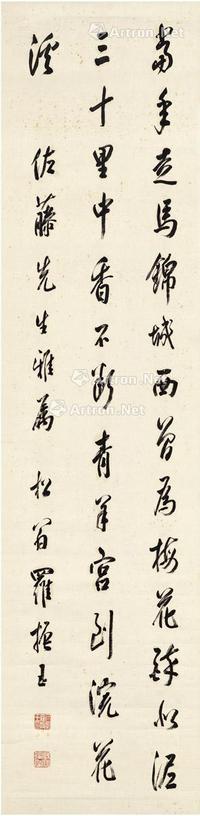 當年走馬錦城西曾為梅花醉似泥
三十里中香不斷青羊宮到浣花
溪 佐藤先生雅屬 松翁羅振玉
Artron.Net
Artron.Net
Artron.Net